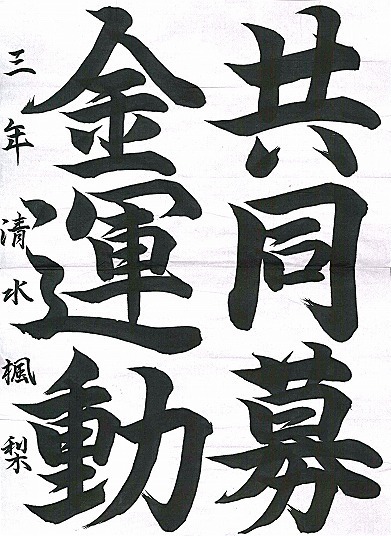 共同募
金運動
三年 清水楓梨